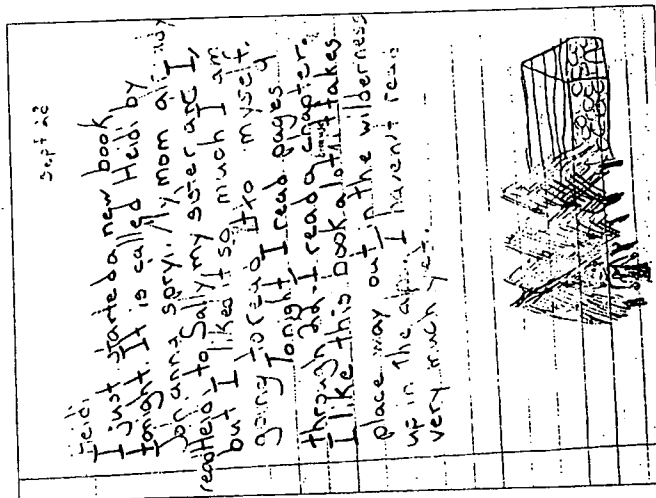 Sept 28
Heidi
I just started a new book
tonight. It is called Heidi by
Joranna spry. My mom already
read Heidi to Sally my sister and I,
but I liked it so much I am
going to read it to myself.
Tonight I read pages 4
through 22-I read a chapter.
I like this book alot it takes
place way out in the wilderness
up in the alps. I haven't read
very much yet.